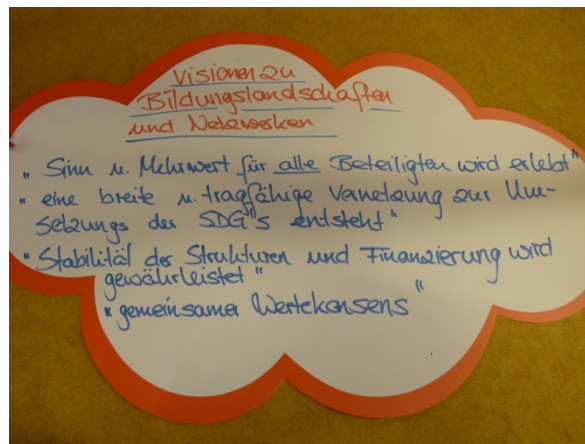 Visionen zu
Bildungslandschaften
und Netzwerken
"Sinn u. Mehrwert für alle Beteiligten wird erlebt"
"eine breite u. tragfähige Vernetzung zur Um-
setzungs der SDG's entsteht"
"Stabilität der Strukturen und Finanzierung wird
gewährleistet"
"gemeinsamer Wertekonsens"